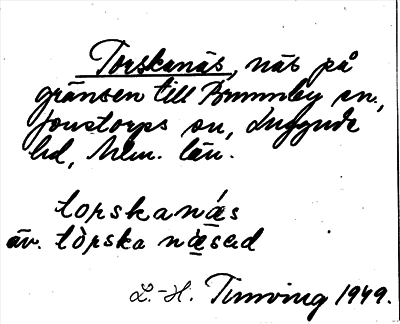 Torskanäs, näs på
gränsen till Brunnby sn.,
Jonstorps sn, Luggude
hd, Mlm. län.
torskanä́s
äv. tòrska nä̀sed
L.-H. Turving 1949.